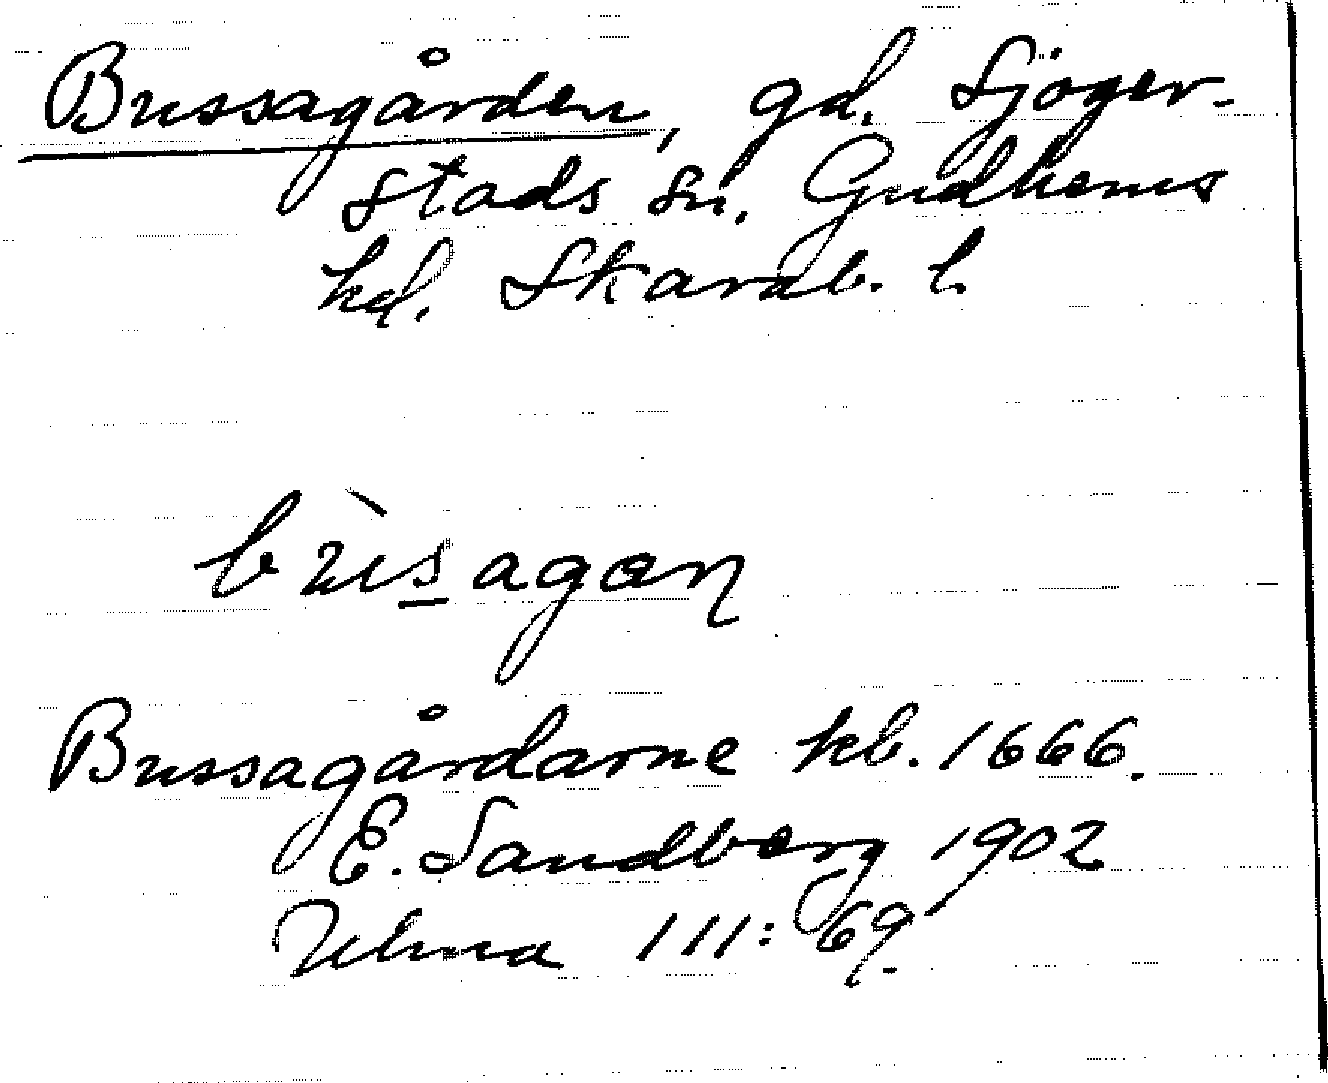 Bussagården, gd. Sjöger-
stads sn. Gudhems
hd. Skarab. l.
bùsagaɳ
Bussagårdarne kb. 1666.
E. Sandberg 1902
Ulma 111: 69.